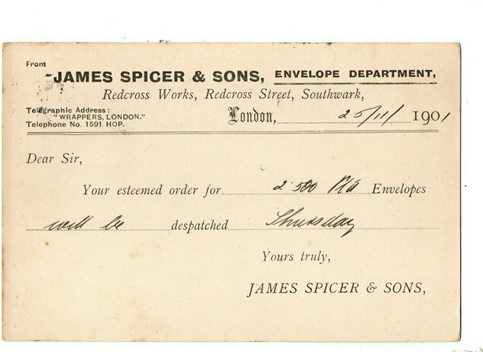 From
JAMES SPICER & SONS, ENVELOPE DEPARTMENT,
Redcross Works, Redcross Street, Southwark,
Telegraphic Address:
"WRAPPERS, LONDON."
Telephone No. 1591 HOP.
London, 25/11/ 1901
Dear Sir,
Your esteemed order for 2500 Envelopes
will be despatched Thursday
Yours truly,
JAMES SPICER & SONS,